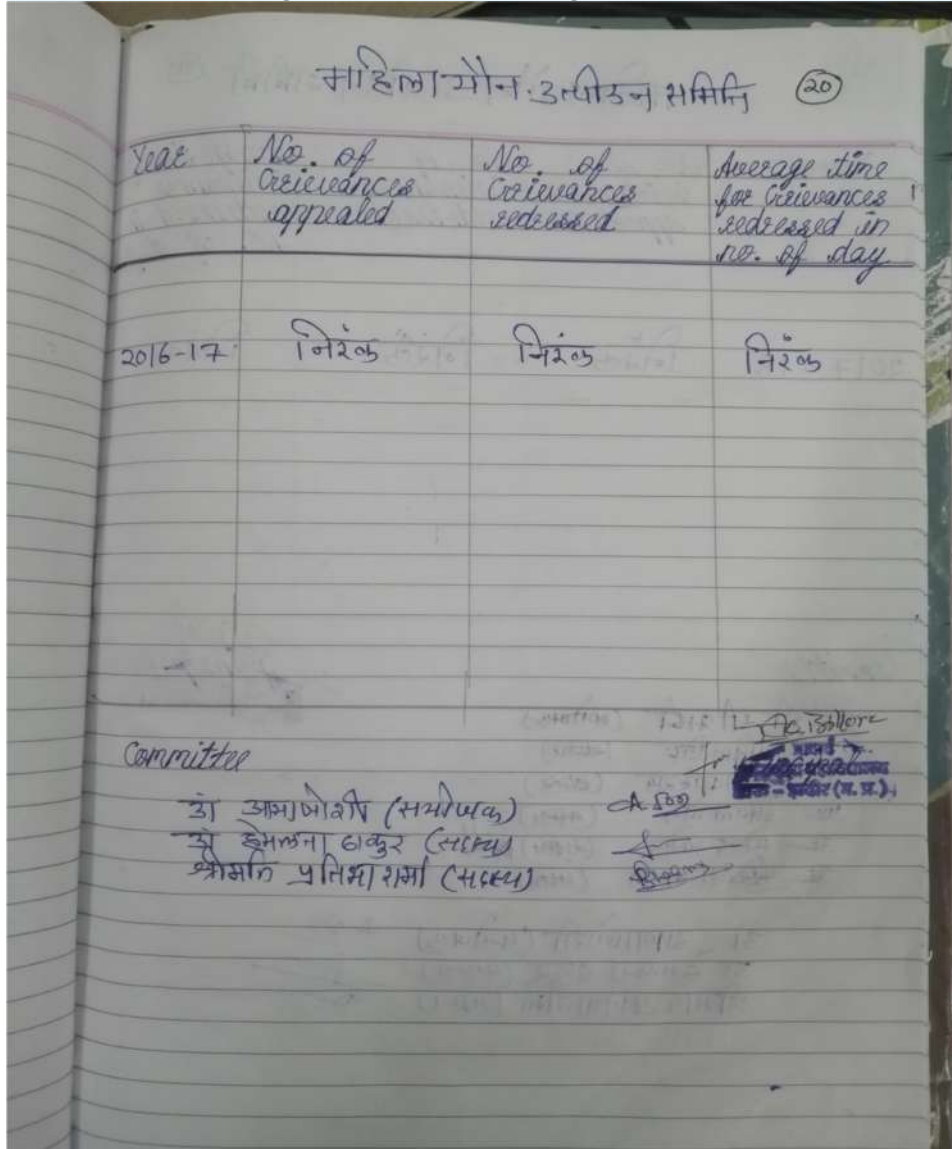 महिला यौन उत्पीडन समिति 20
Year No. of Grievances appealed No. of Grievances redressed Average time for Grievances redressed in no. of day
2016-17 निरंक निरंक निरंक
Committee
डॉ आभा जोशी (संयोजक)
डॉ हेमलता ठाकुर (सदस्य)
श्रीमति प्रतिभा शर्मा (सदस्य)
इन्दौर (म. प्र.)